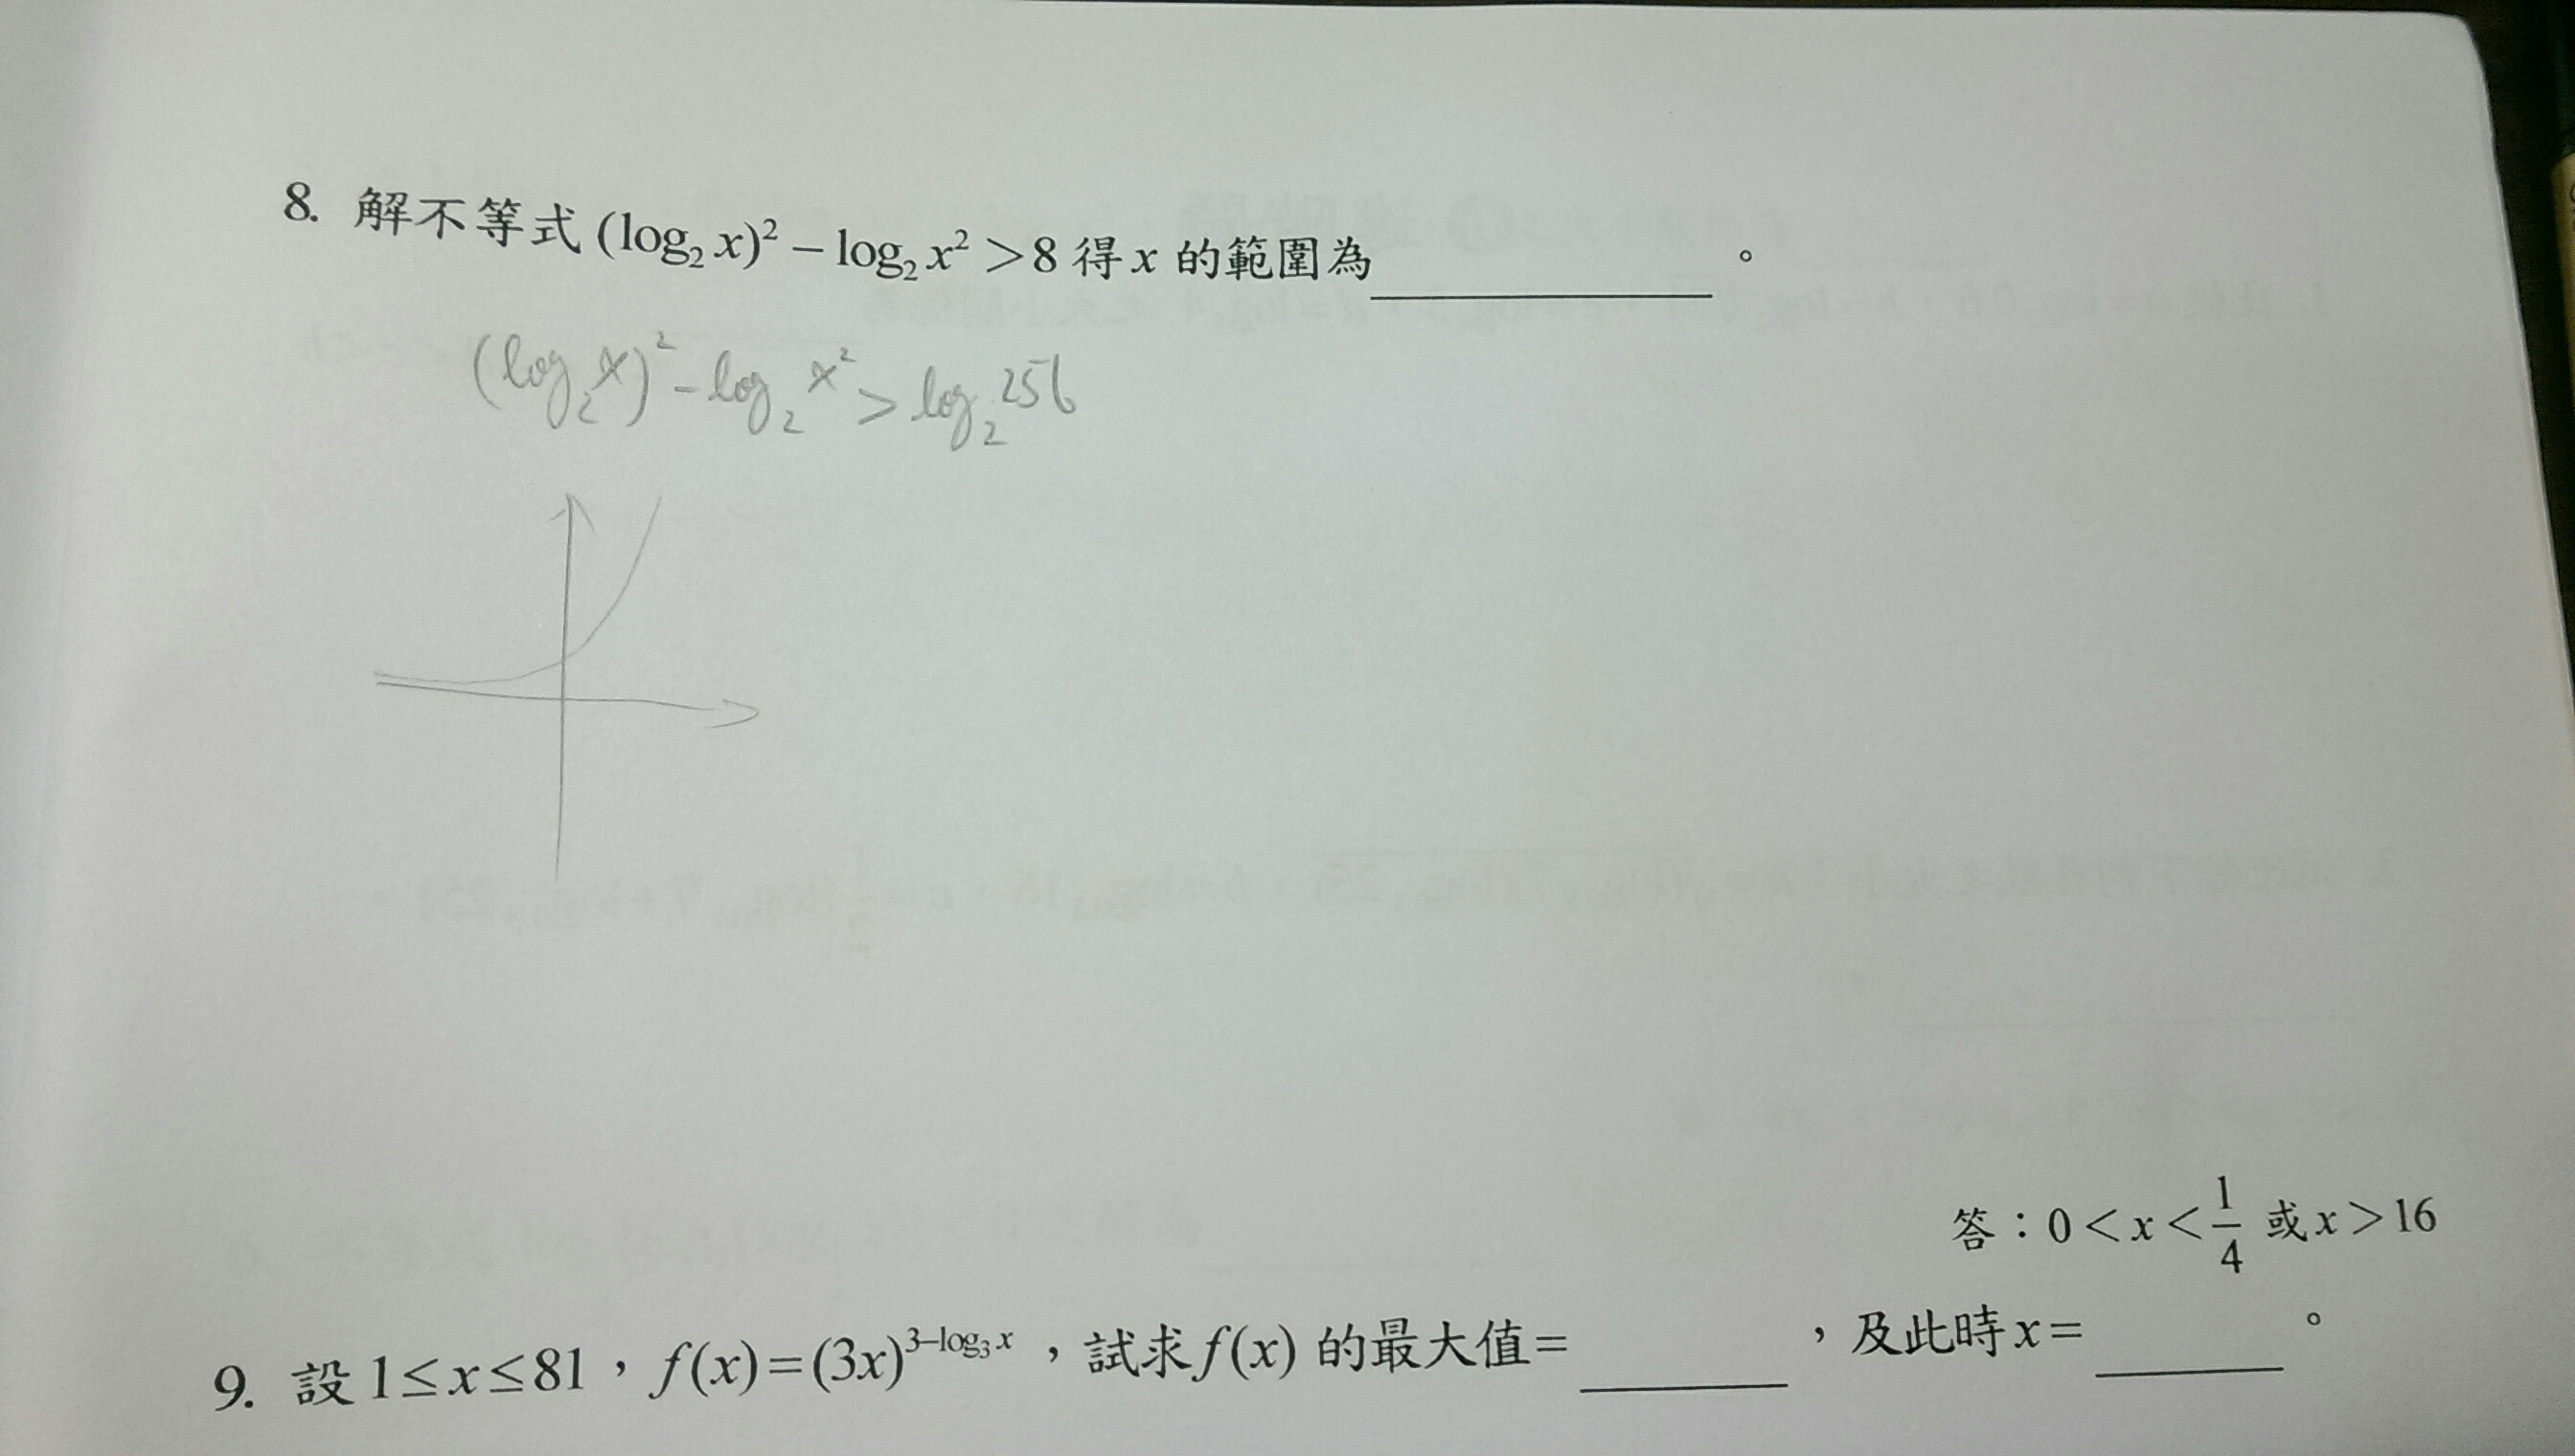 8. 解不等式 (log₂ x)² − log₂ x² > 8 得 x 的範圍為＿＿＿＿＿＿。
(log₂ x)² − log₂ x² > log₂ 256
答：0 < x < 1/4 或 x > 16
9. 設 1 ≤ x ≤ 81，f(x) = (3x)^(3−log₃ x)，試求 f(x) 的最大值=＿＿＿＿，及此時 x=＿＿＿＿。